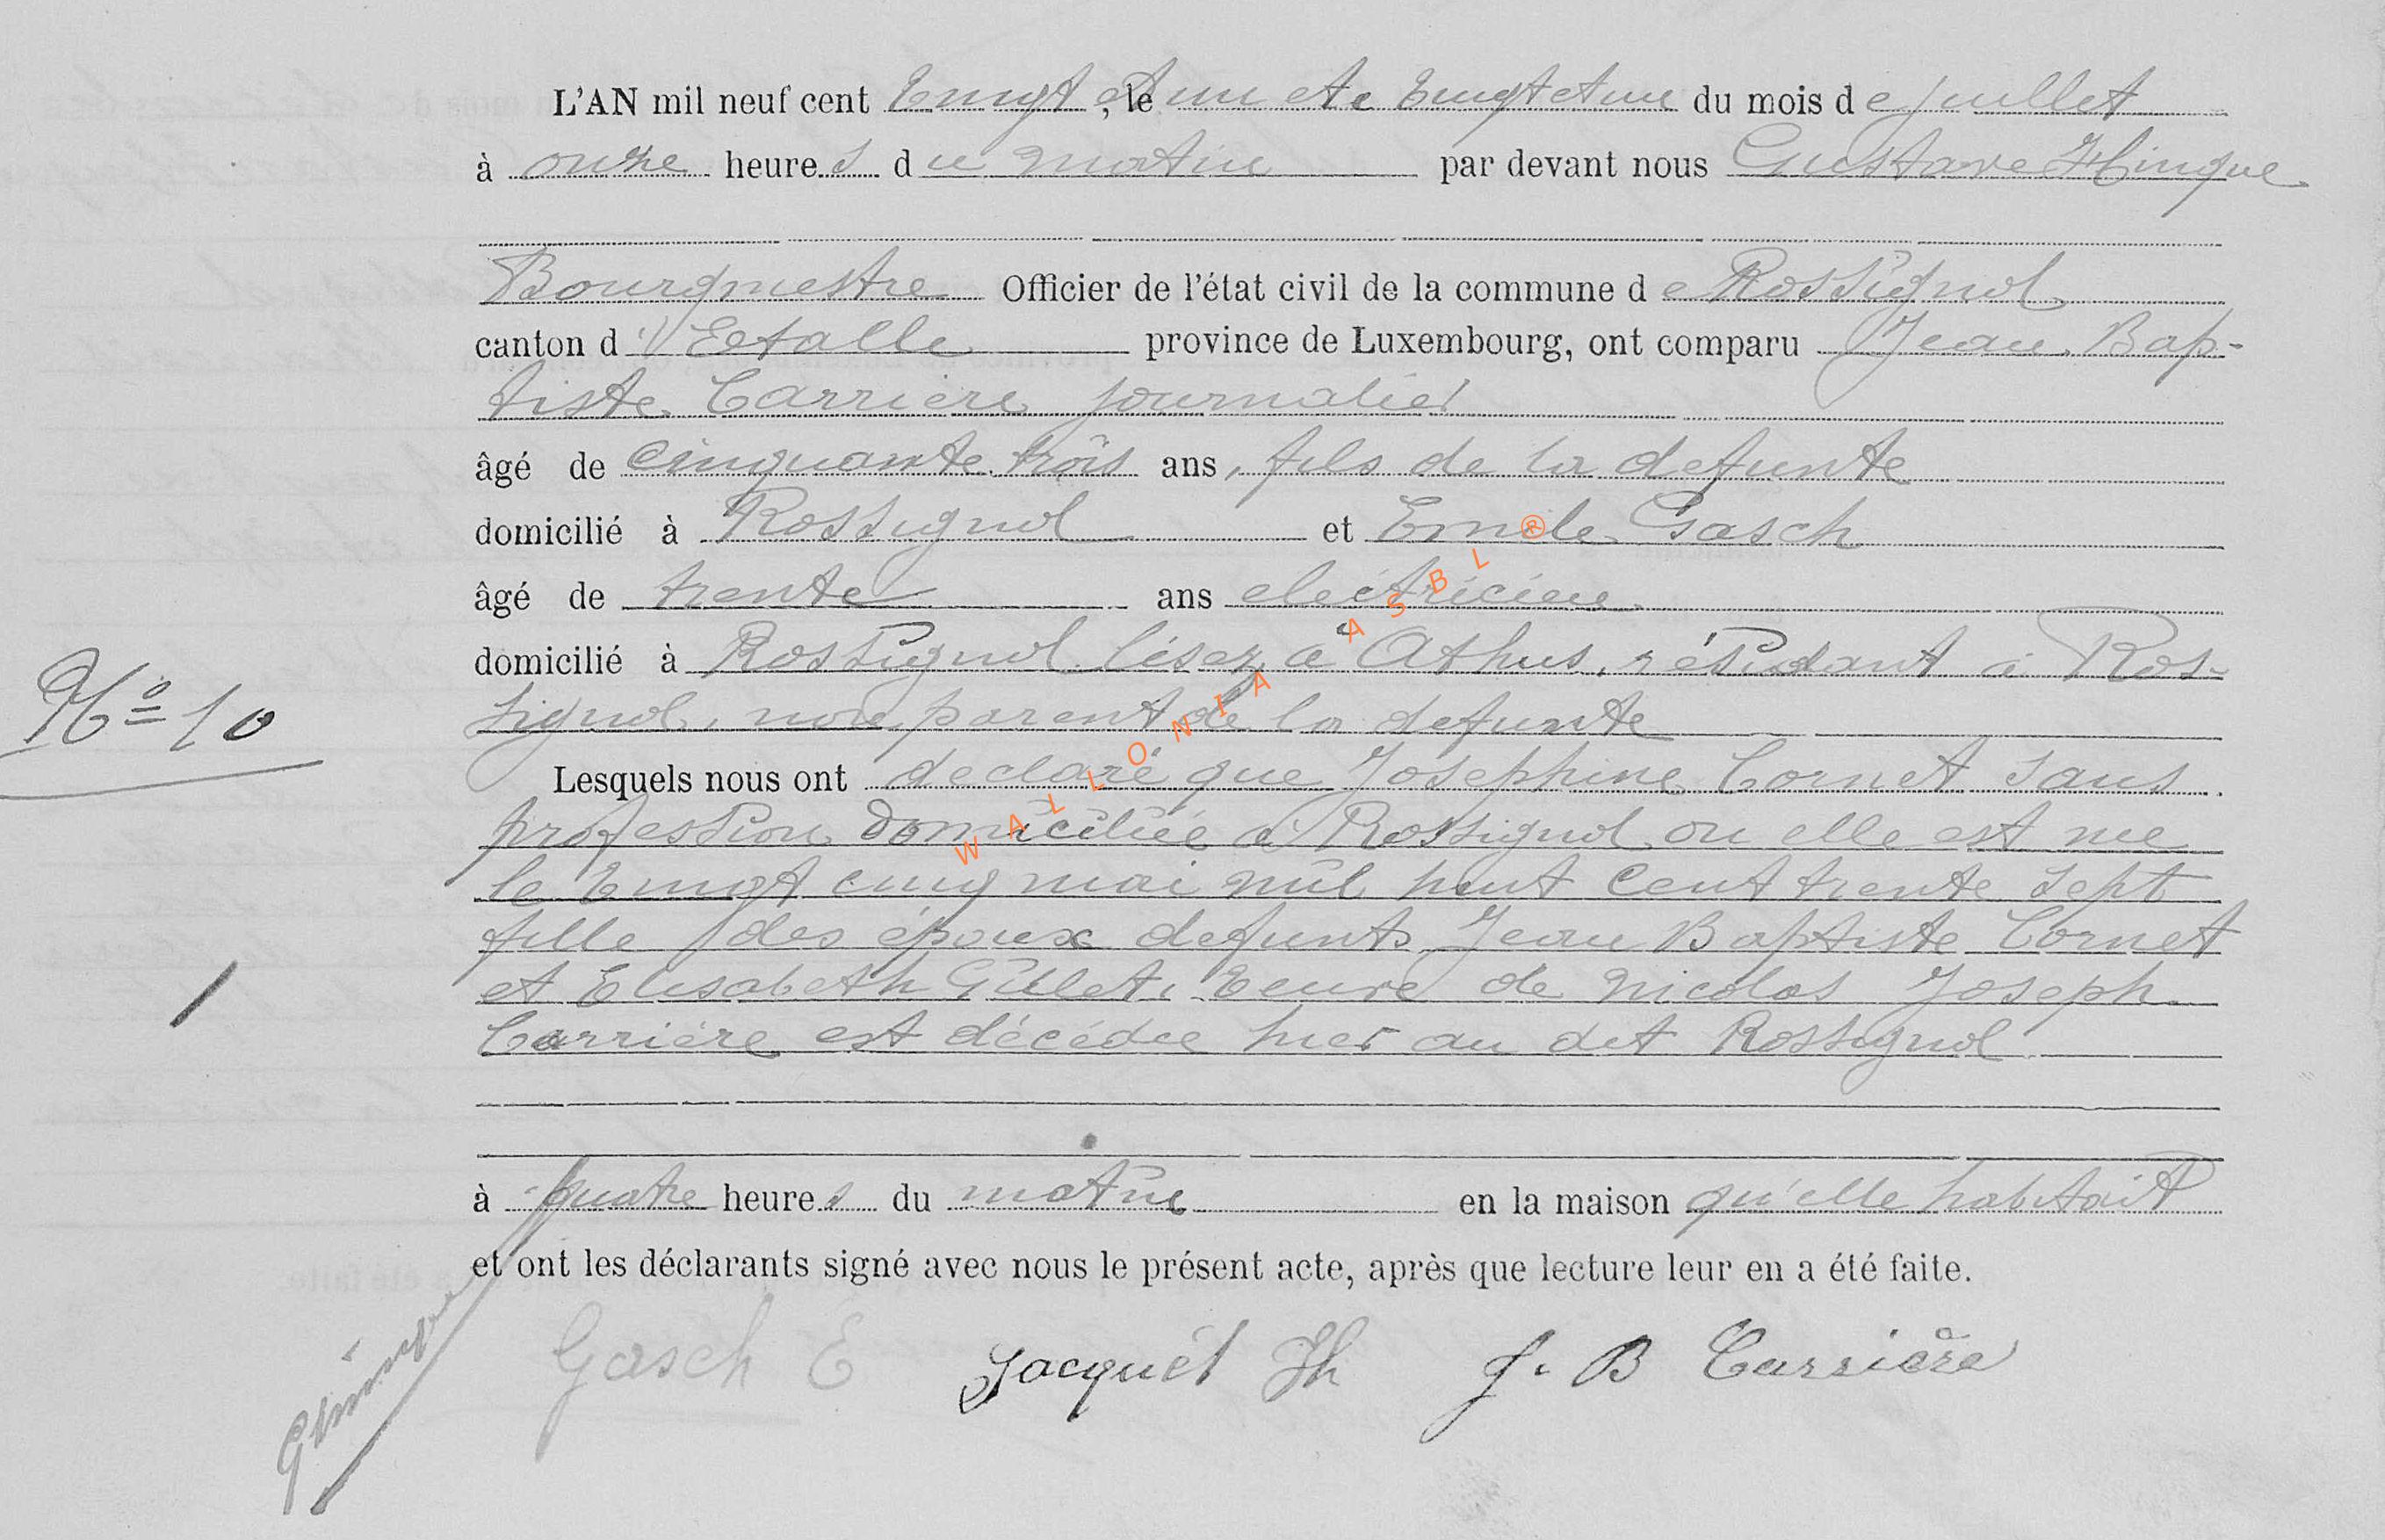 L'AN mil neuf cent vingt et un, le et le vingt et un du mois de juillet
à onze heures du matin par devant nous Gustave Hinque
Bourgmestre Officier de l'état civil de la commune de Rossignol
canton d'Etalle province de Luxembourg, ont comparu Jean Bap-
tiste Carrière journalier
âgé de cinquante trois ans, fils de la defunte
domicilié à Rossignol et Emile Gasch
âgé de trente ans electricien
domicilié à Rossignol lisez à Athus, résidant à Ros-
signol, non parent de la defunte
N° 10
Lesquels nous ont declaré que Josephine Cornet sans
profession domiciliée à Rossignol ou elle est nee
le vingt cinq mai mil huit cent trente sept
fille des époux defunts Jean Baptiste Cornet
et Elisabeth Gillet, veuve de Nicolas Joseph
Carrière est décédée hier au dit Rossignol
à quatre heures du matin en la maison qu'elle habitait
et ont les déclarants signé avec nous le présent acte, après que lecture leur en a été faite.
Gasch E Jacquet Jh J. B Carrière
WALLONIA ASBL ®